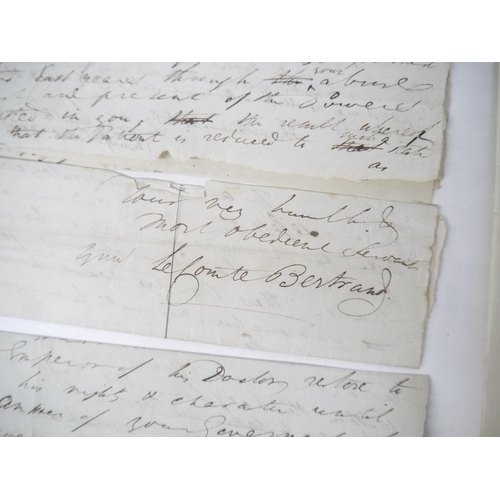 last years through your abuse
and present of the Powers
in you, the result whereof
that the Patient is reduced to such state
as
Your very humble &
most obedient Servant
Le Comte Bertrand.
Emperor of his Doctor, restore to
his rights & character until
answer of your Govern